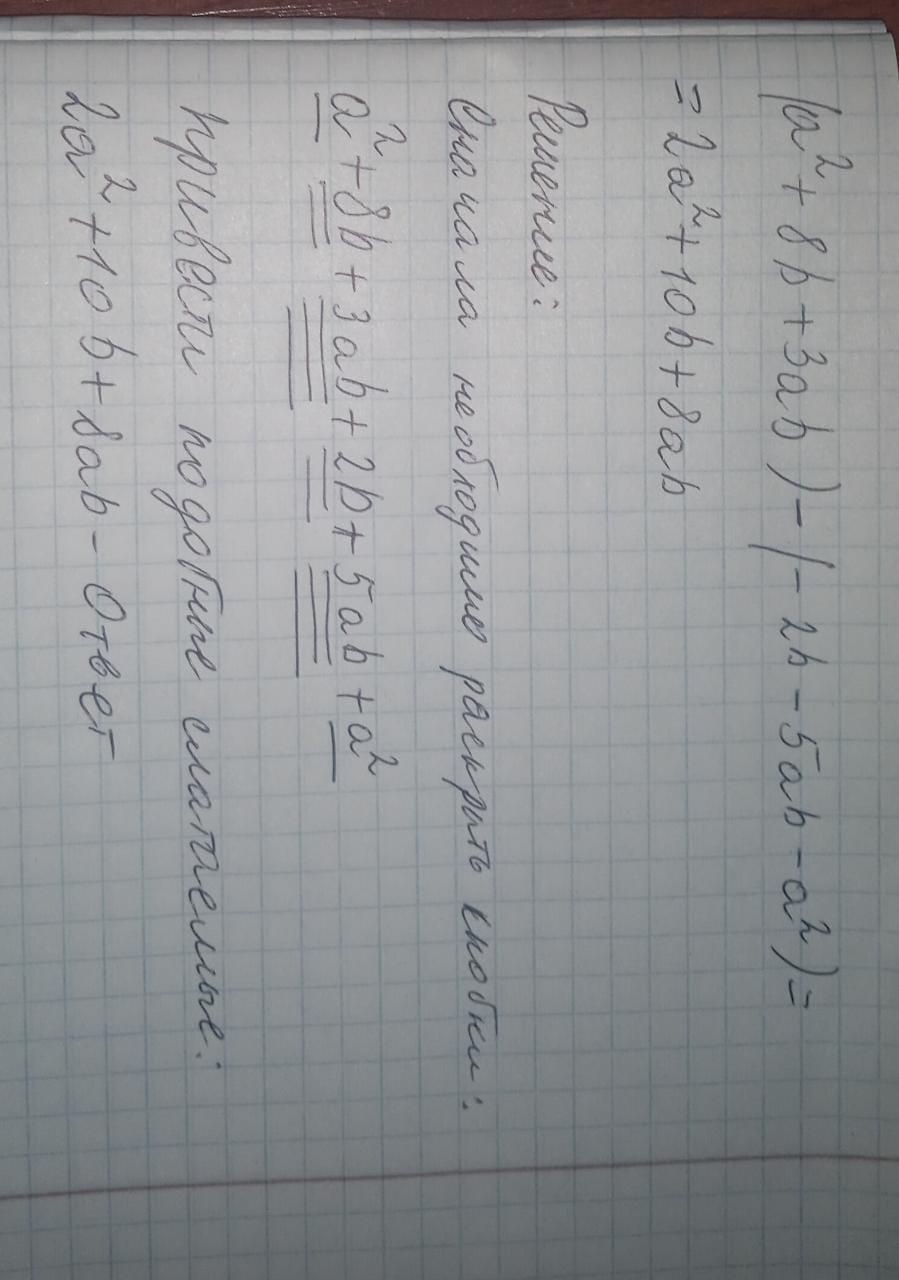 (a²+8b+3ab)-(-2b-5ab-a²)=
=2a²+10b+8ab
Решение:
Сначала необходимо раскрыть скобки:
a²+8b+3ab+2b+5ab+a²
привести подобные слагаемые:
2a²+10b+8ab-Ответ